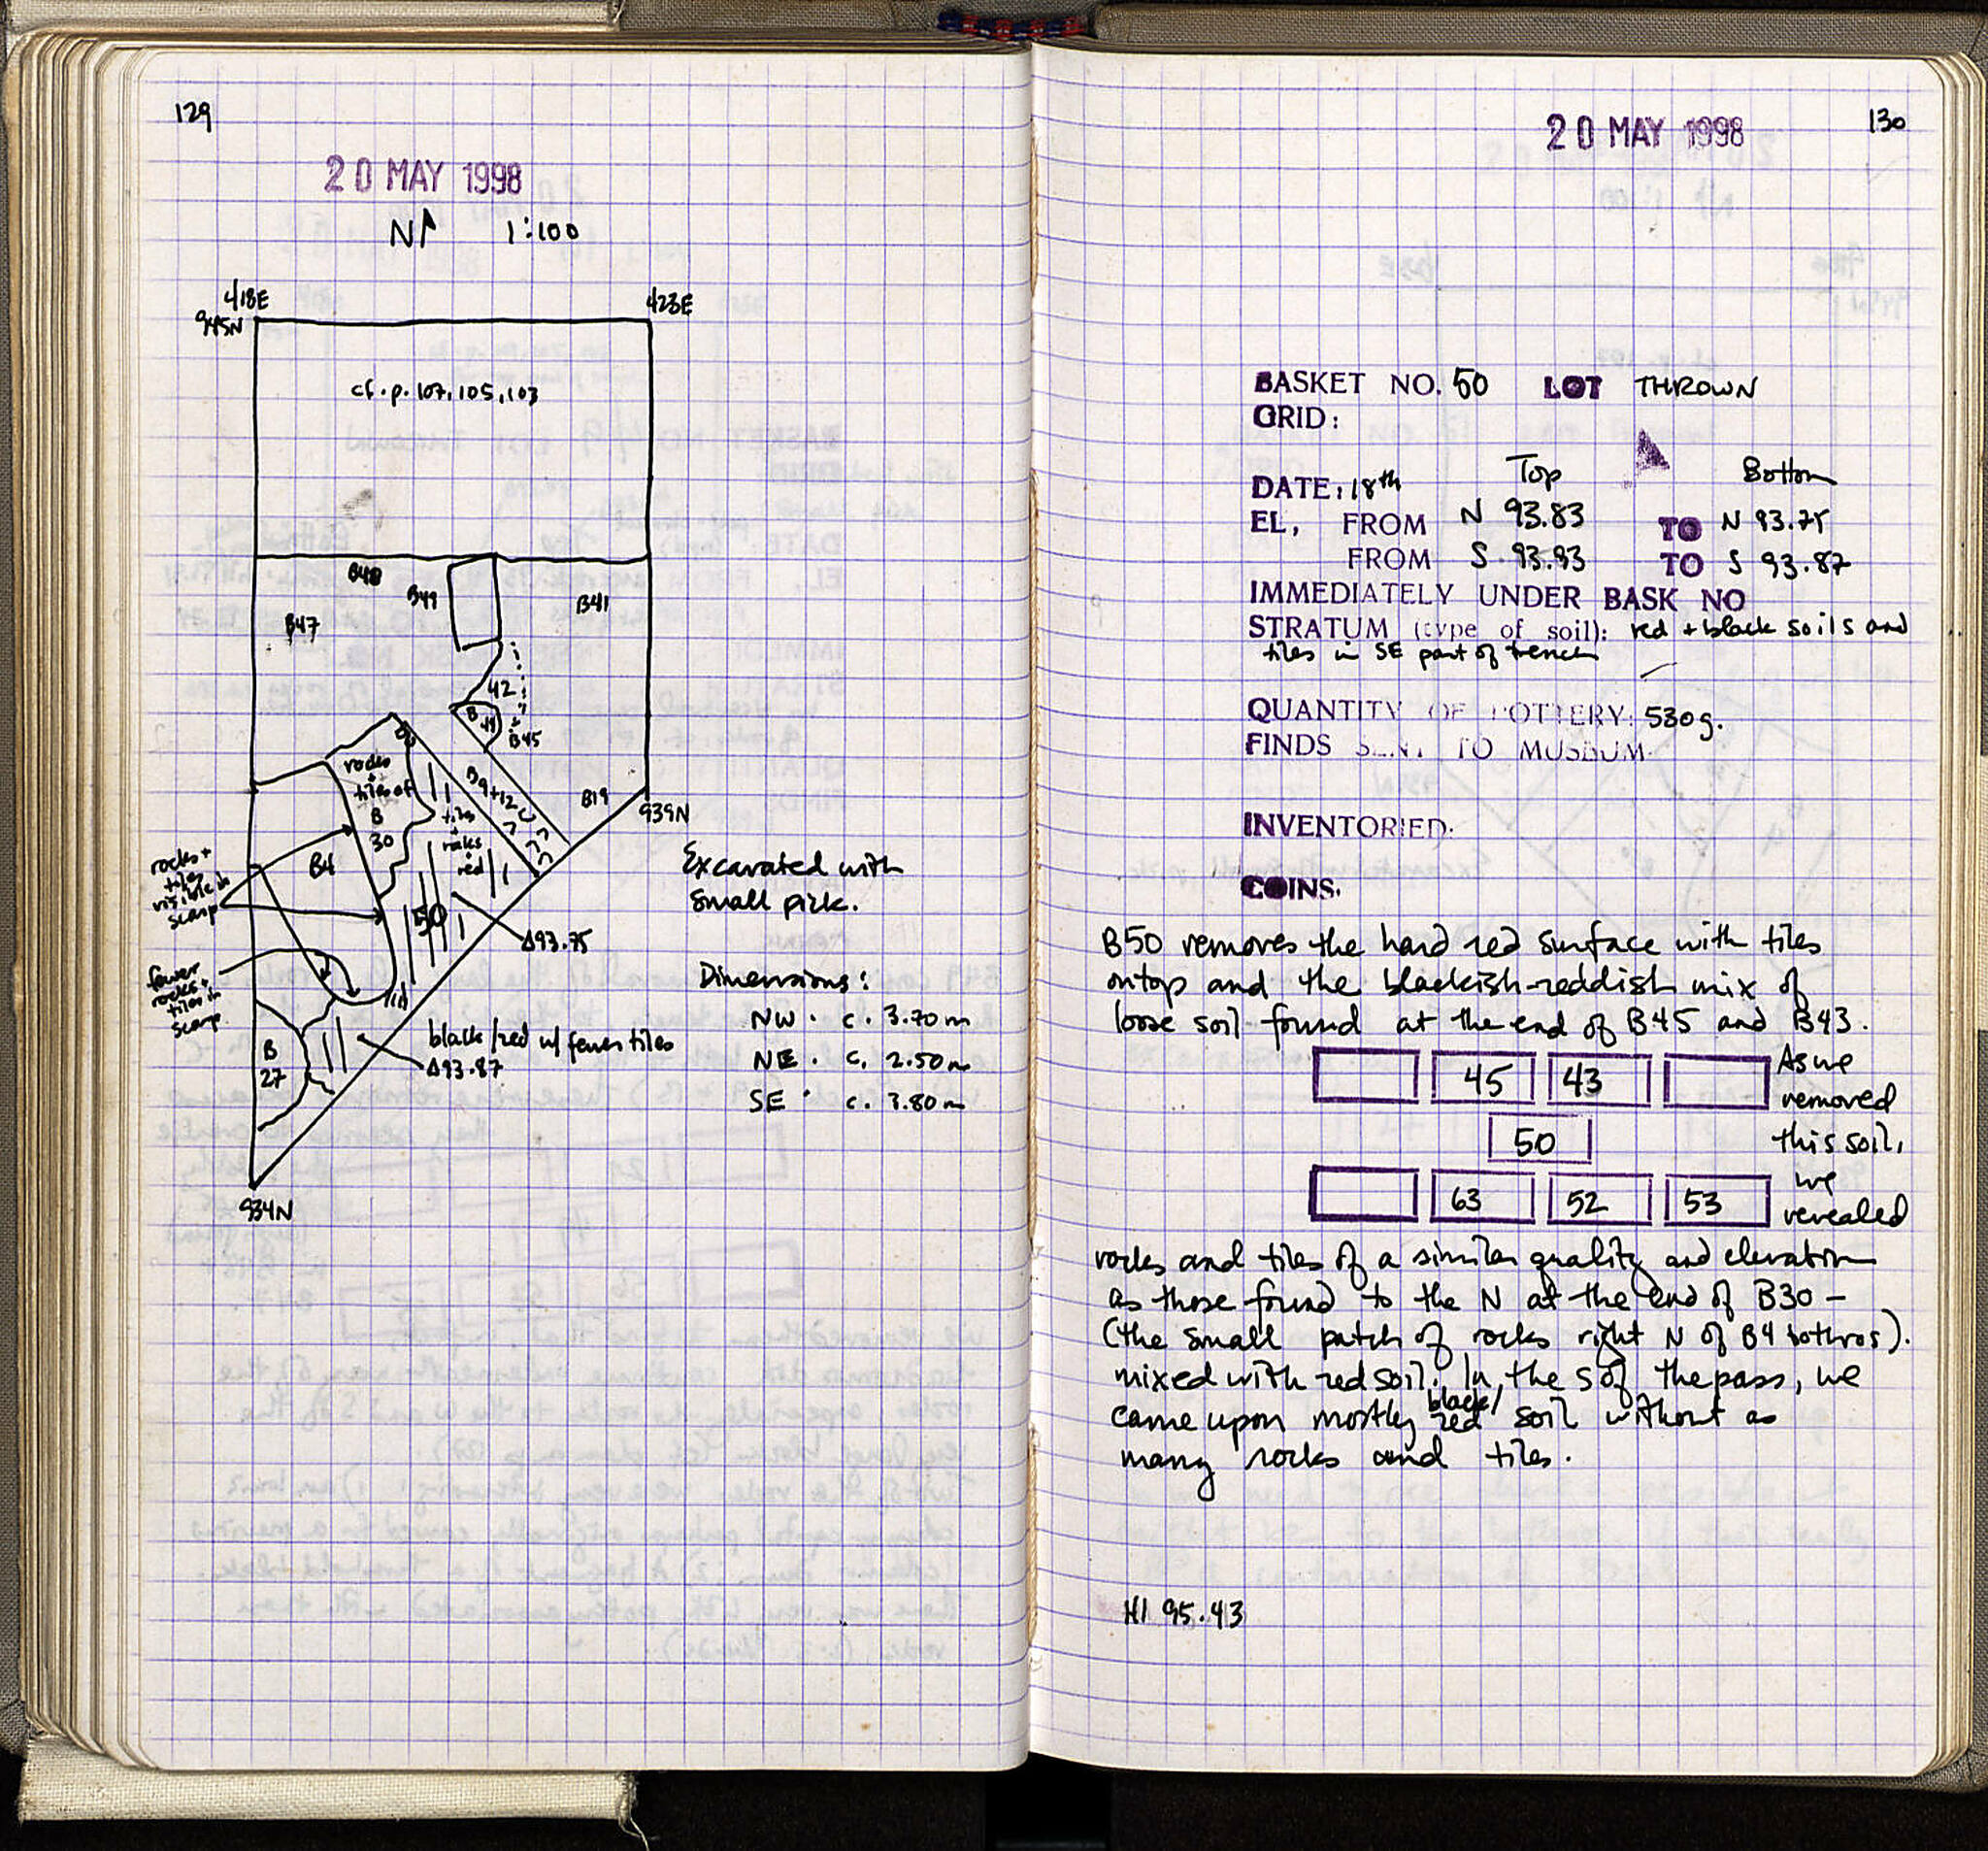 129
20 MAY 1998
N 1:100
418E
423E
945N
cf. p. 107, 105, 103
B48
B49
B41
B47
42
B45
B
rocks
+
tiles of
B
30
B9+12
B19
939N
tiles
+
rocks
red
rocks +
tiles
visible in
scarp
B4
50
Δ93.75
Excavated with
small pick.
fewer
rocks +
tiles in
scarp
Dimensions:
NW. c. 3.70 m
NE. c. 2.50 m
SE c. 3.80 m
black/red w/ fewer tiles
Δ93.87
B
27
934N
20 MAY 1998
130
BASKET NO. 50 LOT THROWN
GRID:
Top Bottom
DATE: 18th
EL, FROM N 93.83 TO N 93.75
FROM S. 93.93 TO S 93.87
IMMEDIATELY UNDER BASK NO
STRATUM (type of soil): red + black soils and
tiles in SE part of trench
QUANTITY OF POTTERY: 530g.
FINDS SENT TO MUSEUM.
INVENTORIED:
COINS.
B50 removes the hard red surface with tiles
ontop and the blackish-reddish mix of
loose soil found at the end of B45 and B43.
45 43
50
63 52 53
As we
removed
this soil,
we
revealed
rocks and tiles of a similar quality and elevation
as those found to the N at the end of B30 -
(the small patch of rocks right N of B4 bothros).
mixed with red soil. In the S of the pass, we
came upon mostly black/red soil without as
many rocks and tiles.
HI 95.43